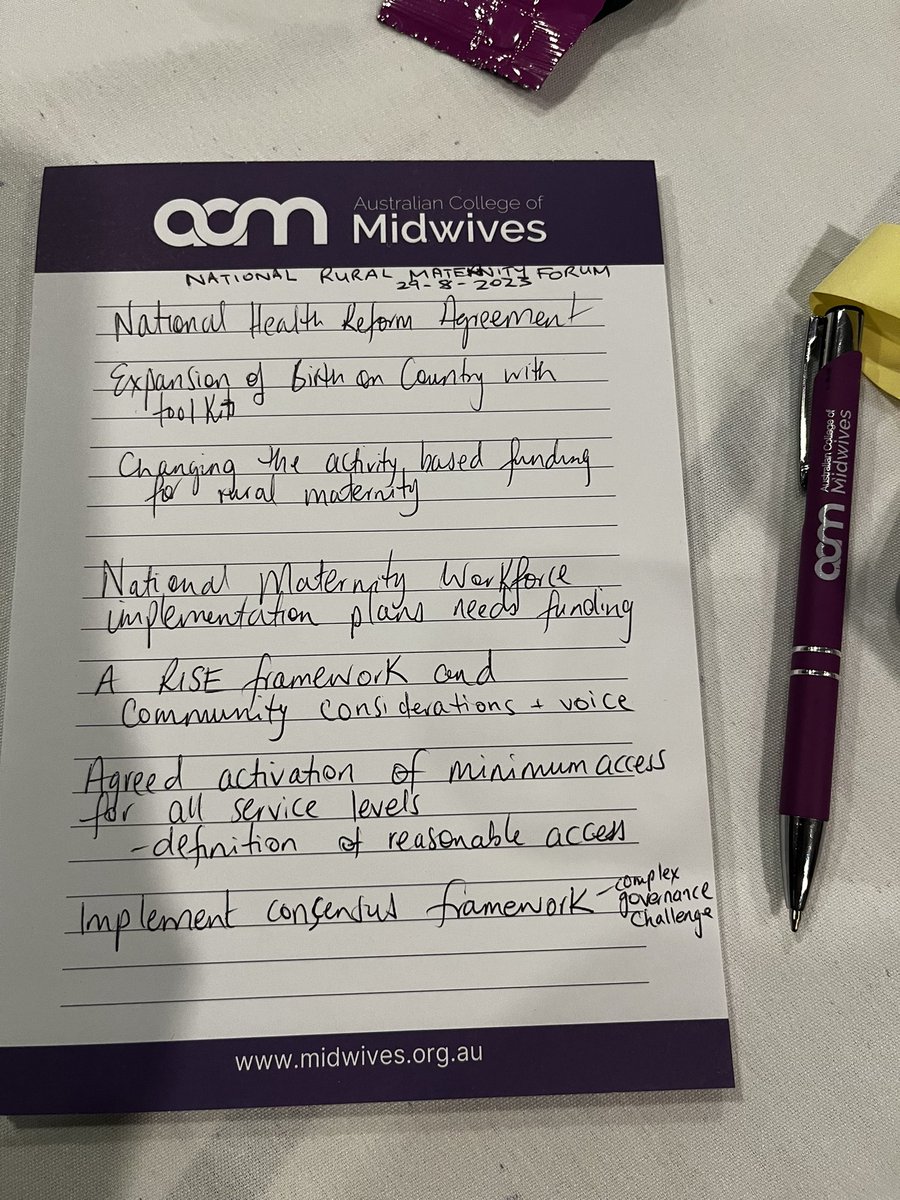 acm Australian College of
Midwives
NATIONAL RURAL MATERNITY FORUM
29-8-2023
National Health Reform Agreement
Expansion of birth on Country with
toolkit
Changing the activity based funding
for rural maternity
National Maternity Workforce
implementation plans needs funding
A RISE framework and
Community considerations + voice
Agreed activation of minimum access
for all service levels
- definition of reasonable access
Implement consensus framework - complex
governance
Challenge
www.midwives.org.au
acm Australian College of
Midwives